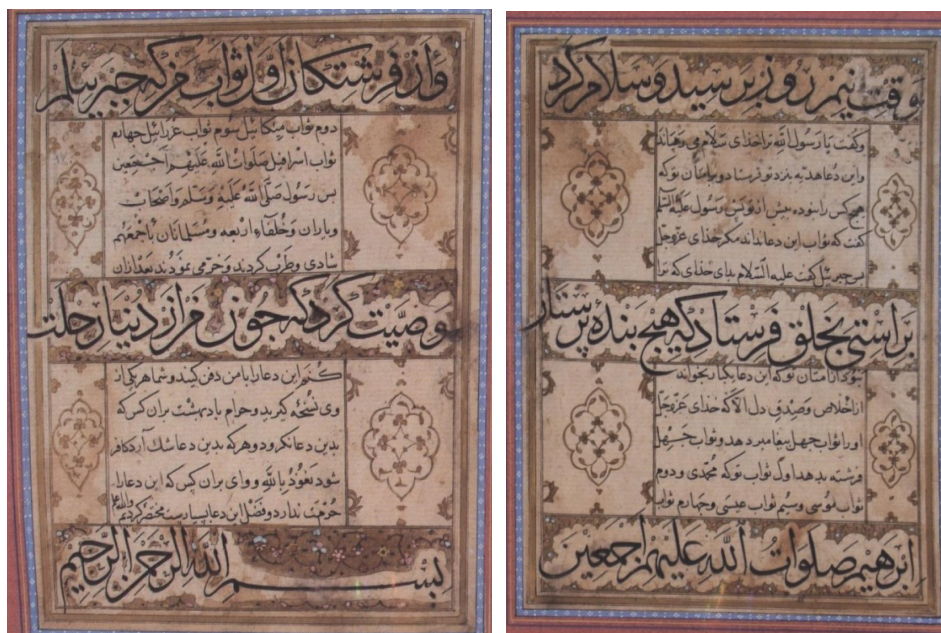 وقت نیم روز برسید و سلام کرد
و کفت یا رسول الله ترا خذای سلام می رساند
و این دعا هدیه بنزد تو فرستاد و بامتان تو که
هیچ کس را نبوده بیش از تو بس رسول علیه السلم
کفت که ثواب این دعا نداند مکر خذای عزوجل
بس جبرییل کفت علیه السلام بدای خذای که ترا
براستی بخلق فرستاد که هیچ بنده پرستار
نبود از امتان تو که این دعا یکبار بخواند
از اخلاص و صدق دل الا که خذای عزوجل
او را ثواب جهل بیغامبر دهد و ثواب جهل
فرشته بدهد اول ثواب تو که محمدی و دوم
ثواب موسی و سیم ثواب عیسی و چهارم ثواب
ابرهیم صلوات الله علیهم اجمعین
و از فرشتکان اول ثواب من که جبرئیلم
دوم ثواب میکائیل سوم ثواب عزرائیل جهارم
ثواب اسرافیل صلوات الله علیهم اجمعین
بس رسول صلی الله علیه وسلم و اصحاب
و یاران و خلفاء اربعه و مسلمانان باجمعهم
شادی و طرب کردند و خرمی نمودند بعد ازان
وصیت کرد که جون من از دنیا رحلت
کنم این دعا را با من دفن کنید و شما هر یکی از
وی نسخه کیرید و حرام باد بهشت بران کس که
بدین دعا نکرود و هر که بدین دعا شك آرد کافر
شود نعوذ بالله و وای بران کس که این دعا را
حرمت ندارد و فضل این دعا بسیارست مختصر کردیم والله اعلم
بسم الله الرحمن الرحیم